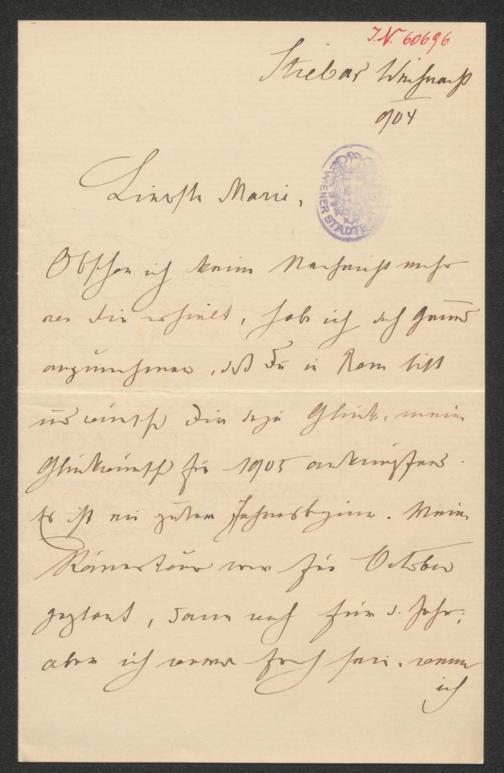 I.N. 60696
Stiebar Weihnacht
1904
WIENER STADTB
Liebste Marie,
Obschon ich keine Nachricht mehr
von Dir erhielt, habe ich doch Grund
anzunehmen, daß Du in Rom bist
und wünsche Dir dazu Glück, meine
Glückwünsche für 1905 anknüpfend.
Es ist ein guter Jahresbeginn. Meine
war für October
geplant, dann noch für d. Jahr;
aber ich froh sein, wenn
ich